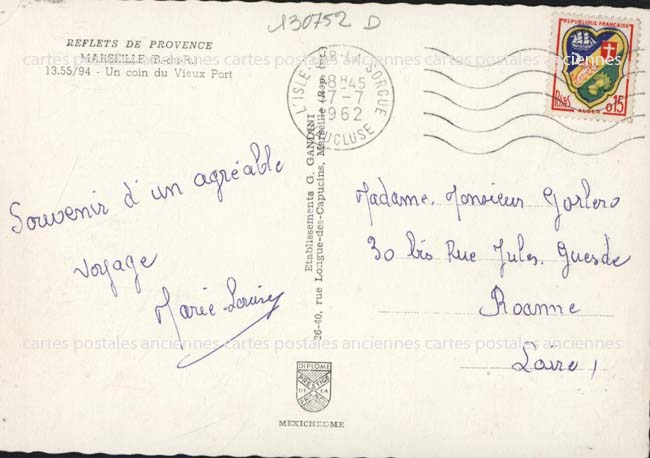 130752 D
REFLETS DE PROVENCE
MARSEILLE (B.-d.-R.)
13.55/94 - Un coin du Vieux Port
L'ISLE-SUR-LA-SORGUE
18H45
7-7
1962
VAUCLUSE
REPUBLIQUE FRANÇAISE
POSTES
0,15
ALGER
Souvenir d'un agréable
voyage
Marie-Louise
Etablissements G. GANDINI
36-40, rue Longue-des-Capucins, Marseille
Madame. Monsieur Gorlero
30 bis Rue Jules. Guesde
Roanne
Loire
cartes postales anciennes cartes postales anciennes cartes postales anciennes
DIPLOME
PRESTIGE
DE LA
FRANCE
MEXICHROME